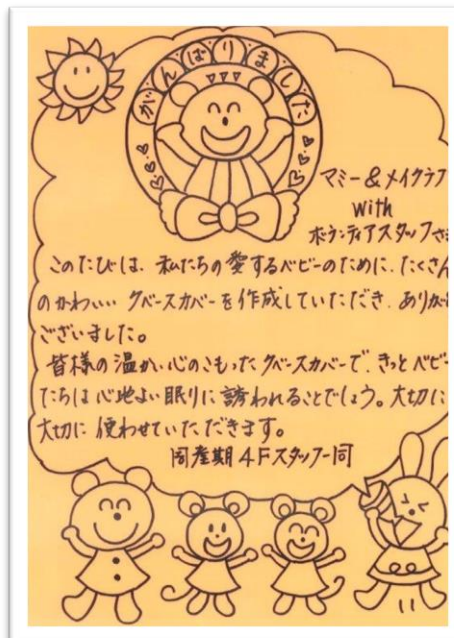 がんばりました
マミー&メイクラフ
with
ボランティアスタッフさ
このたびは、私たちの愛するベビーのために、たくさん
のかわいい クベースカバーを作成していただき、ありが
ございました。
皆様の温かい心のこもった クベースカバーで、きっと ベビー
たちは 心地よい眠りに 誘われることでしょう。大切に
大切に 使わせていただきます。
周産期 4Fスタッフ一同